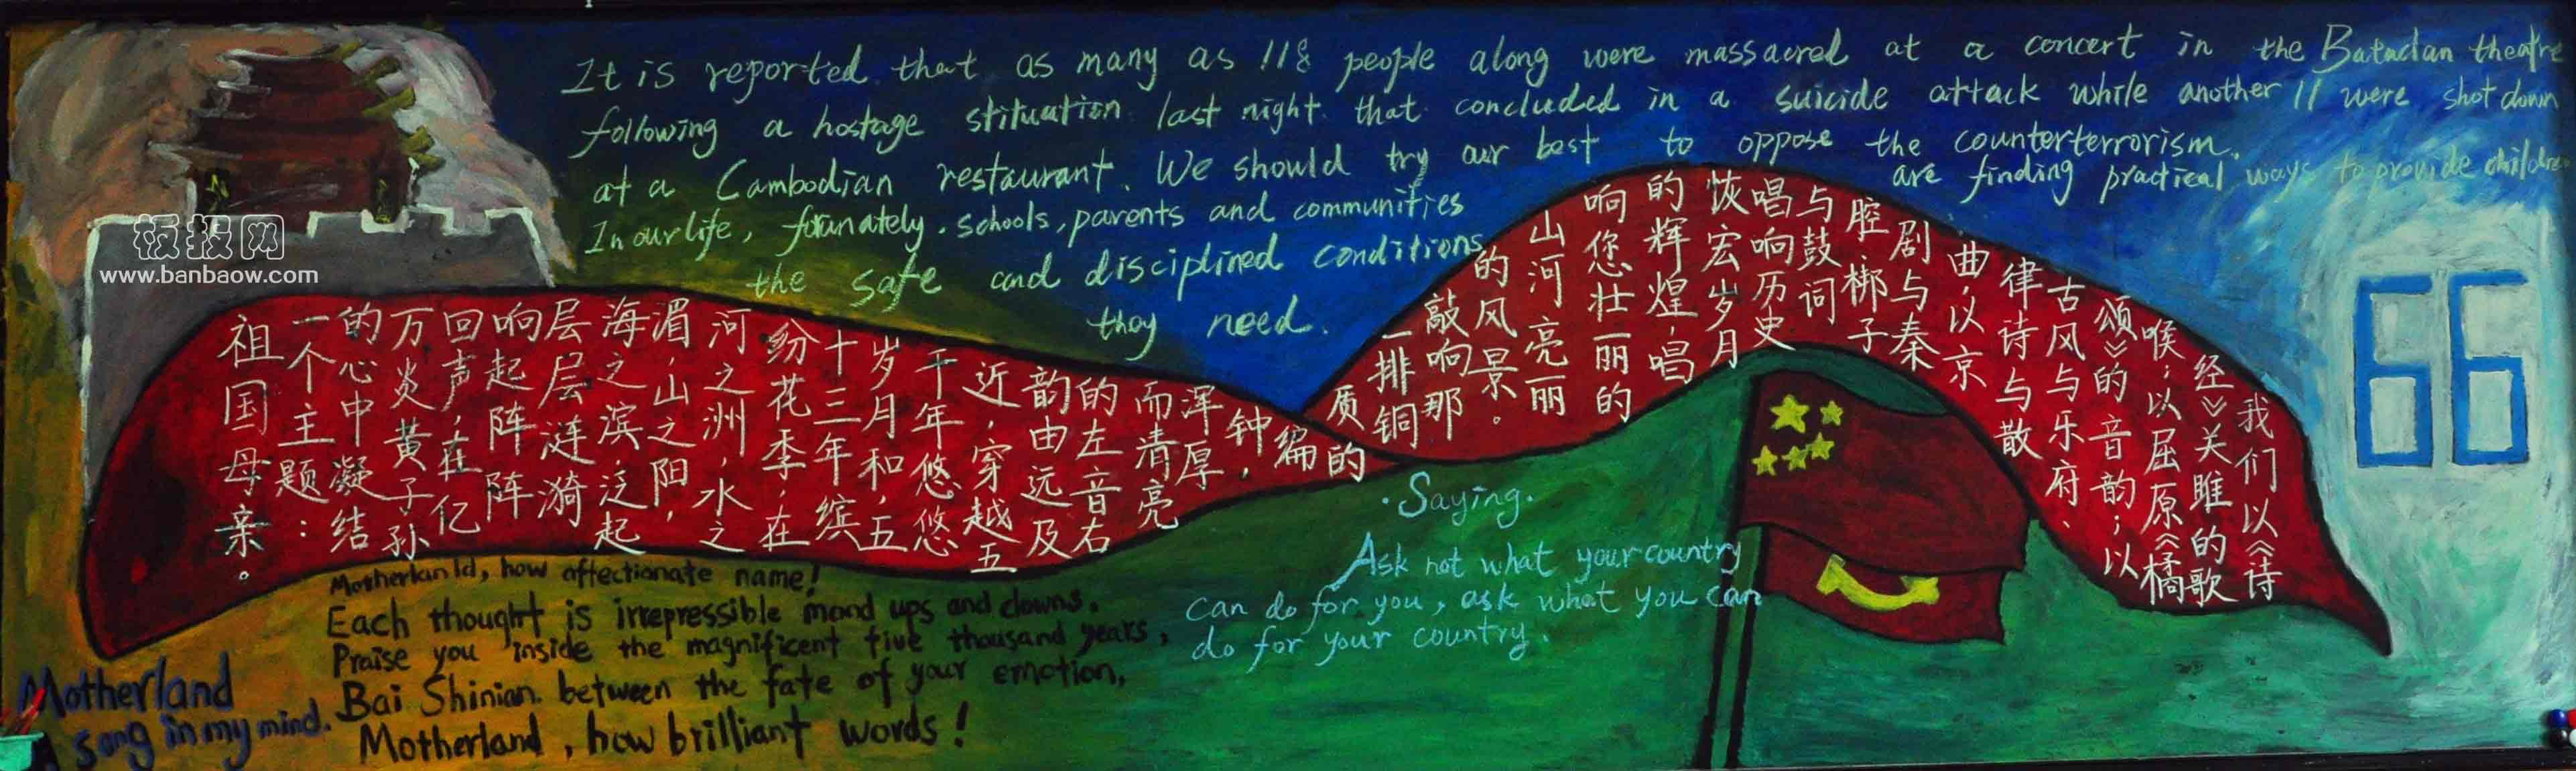 It is reported that as many as 118 people along were massacred at a concert in the Bataclan theatre
following a hostage stituation last night that concluded in a suicide attack while another 11 were shot down
at a Cambodian restaurant. We should try our best to oppose the counterterrorism.
In our life, fortunately, schools, parents and communities are finding practical ways to provide children
the safe and disciplined conditions
they need.
板报网
www.banbaow.com
66
我们以《诗
经》关雎的歌
喉；以屈原《橘
颂》的音韵；以
古风与乐府、
律诗与散
曲，以京
剧与秦
腔梆子
与鼓词
唱响历史
恢宏岁月
的辉煌，唱
响您壮丽的
山河亮丽
的风景。
敲响那
一排铜
质
的
编
钟，
浑厚
而清亮
的左音右
韵由远及
近，穿越五
千年悠悠
岁月和，五
十三年缤
纷花季，在
河之洲，水之
湄，山之阳，
海之滨，泛起
层层涟漪
响起阵阵
回声，在亿
万炎黄子孙
的心中凝结
一个主题：
祖国母亲。
·Saying·
Ask not what your country
can do for you, ask what you can
do for your country.
Motherlanld, how affectionate name!
Each thought is irrepressible mood ups and downs.
Praise you inside the magnificent five thousand years,
Bai Shinian between the fate of your emotion,
Motherland, how brilliant words!
Motherland
song in my mind.